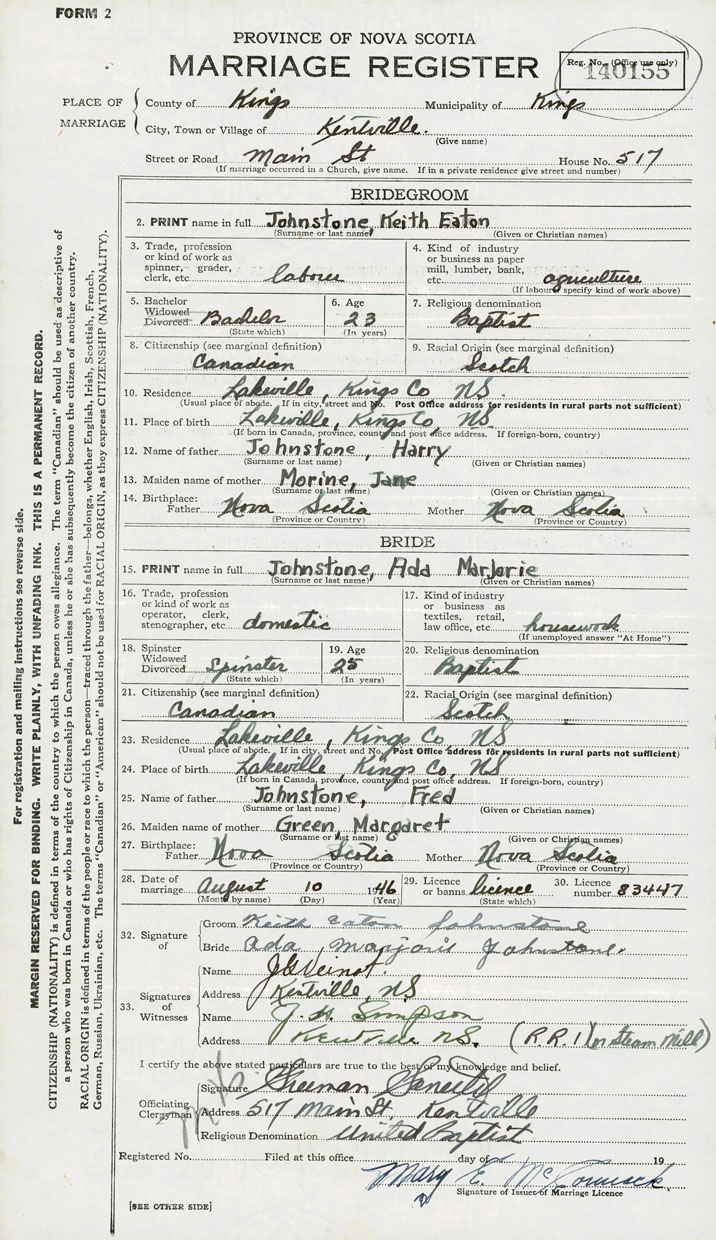 FORM 2
PROVINCE OF NOVA SCOTIA
MARRIAGE REGISTER
Reg. No. (Office use only)
140155
PLACE OF MARRIAGE
County of Kings Municipality of Kings
City, Town or Village of Kentville.
(Give name)
Street or Road Main St House No. 517
(If marriage occurred in a Church, give name. If in a private residence give street and number)
BRIDEGROOM
2. PRINT name in full Johnstone, Keith Eaton
(Surname or last name) (Given or Christian names)
3. Trade, profession or kind of work as spinner, grader, clerk, etc. labour
4. Kind of industry or business as paper mill, lumber, bank, etc. agriculture
(If labour, specify kind of work above)
5. Bachelor Widowed Divorced Bachelor
(State which)
6. Age 23
(In years)
7. Religious denomination Baptist
8. Citizenship (see marginal definition) Canadian
9. Racial Origin (see marginal definition) Scotch
10. Residence Lakeville, Kings Co NS.
(Usual place of abode. If in city, street and No. Post Office address for residents in rural parts not sufficient)
11. Place of birth Lakeville, Kings Co, NS
(If born in Canada, province, county and post office address. If foreign-born, country)
12. Name of father Johnstone, Harry
(Surname or last name) (Given or Christian names)
13. Maiden name of mother Morine, Jane
(Surname or last name) (Given or Christian names)
14. Birthplace: Father Nova Scotia Mother Nova Scotia
(Province or Country) (Province or Country)
BRIDE
15. PRINT name in full Johnstone, Ada Marjorie
(Surname or last name) (Given or Christian names)
16. Trade, profession or kind of work as operator, clerk, stenographer, etc. domestic
17. Kind of industry or business as textiles, retail, law office, etc. housework
(If unemployed answer "At Home")
18. Spinster Widowed Divorced Spinster
(State which)
19. Age 25
(In years)
20. Religious denomination Baptist
21. Citizenship (see marginal definition) Canadian
22. Racial Origin (see marginal definition) Scotch
23. Residence Lakeville, Kings Co, NS
(Usual place of abode. If in city, street and No. Post Office address for residents in rural parts not sufficient)
24. Place of birth Lakeville Kings Co, NS
(If born in Canada, province, county and post office address. If foreign-born, country)
25. Name of father Johnstone, Fred
(Surname or last name) (Given or Christian names)
26. Maiden name of mother Green, Margaret
(Surname or last name) (Given or Christian names)
27. Birthplace: Father Nova Scotia Mother Nova Scotia
(Province or Country) (Province or Country)
28. Date of marriage August 10 1946
(Month by name) (Day) (Year)
29. Licence or banns licence
(State which)
30. Licence number 83447
32. Signature of
Groom Keith Eaton Johnstone
Bride Ada Marjorie Johnstone.
33. Signatures of Witnesses
Name J G Veinot.
Address Kentville, NS
Name J. H. Simpson
Address Kentville N.S. (R.R.1 or Steam Mill)
I certify the above stated particulars are true to the best of my knowledge and belief.
Officiating Clergyman
Signature Freeman
Address 517 Main St, Kentville
Religious Denomination United Baptist
Registered No. Filed at this office day of 19
Mary E. McCormick
Signature of Issuer of Marriage Licence
[SEE OTHER SIDE]
For registration and mailing instructions see reverse side.
MARGIN RESERVED FOR BINDING. WRITE PLAINLY, WITH UNFADING INK. THIS IS A PERMANENT RECORD.
CITIZENSHIP (NATIONALITY) is defined in terms of the country to which the person owes allegiance. The term "Canadian" should be used as descriptive of
a person who was born in Canada or who has rights of Citizenship in Canada, unless he or she has subsequently become the citizen of another country.
RACIAL ORIGIN is defined in terms of the people or race to which the person—traced through the father—belongs, whether English, Irish, Scottish, French,
German, Russian, Ukrainian, etc. The terms "Canadian" or "American" should not be used for RACIAL ORIGIN, as they express CITIZENSHIP (NATIONALITY).